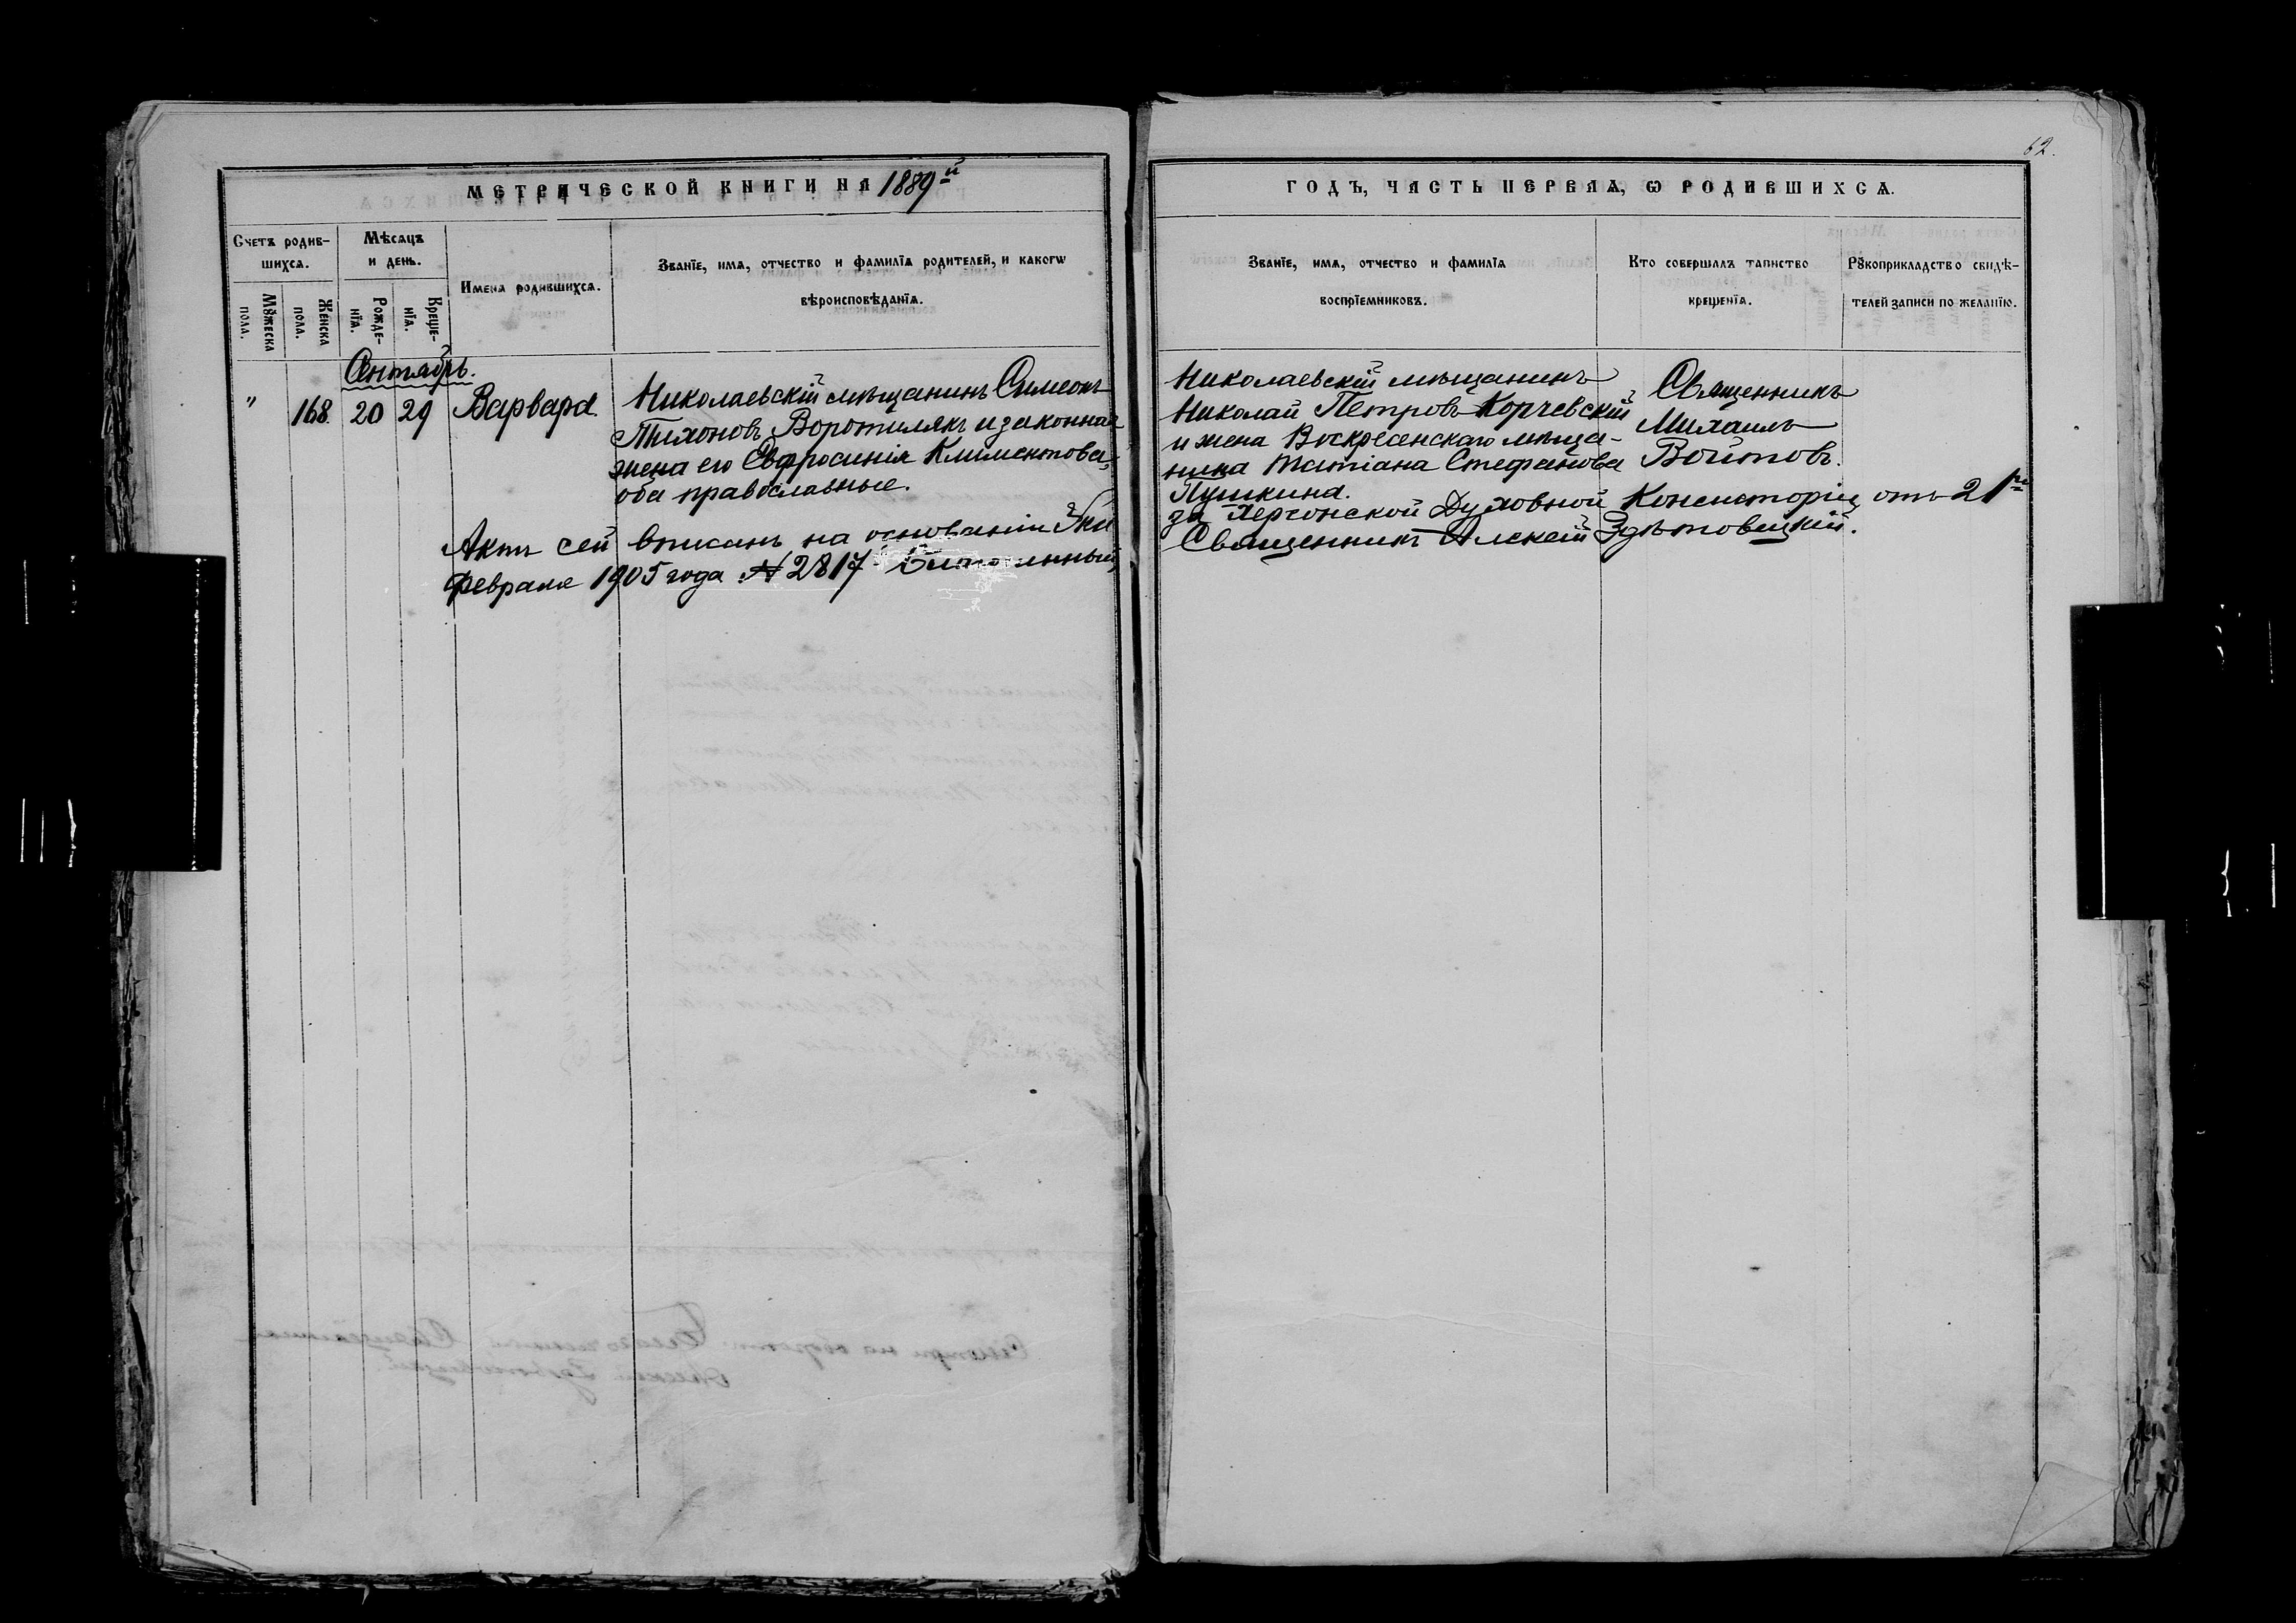 62.
МЕТРИЧЕСКОЙ КНИГИ НА 1889й
ГОДЪ, ЧАСТЬ ПЕРВАѦ, Ѡ РОДИВШИХСѦ.
Счетъ родив-
шихсѧ.
Мꙋжеска
пола.
Женска
пола.
Мѣсѧцъ
и день.
Рожде-
нїѧ.
Креще-
нїѧ.
Имена родившихсѧ.
Званїе, имѧ, отчество и фамилїѧ родителей, и какогѡ
вѣроисповѣданїѧ.
Званїе, имѧ, отчество и фамилїѧ
воспрїемниковъ.
Кто совершалъ таинство
крещенїѧ.
Рꙋкоприкладство свидѣ-
телей записи по желанїю.
Сентябрь.
" 168. 20 29 Варвара.
Николаевскій мѣщанинъ Симеонъ
Тихоновъ Воротилякъ и законная
жена его Евфросинія Климентова,
оба православные.
Николаевскій мѣщанинъ
Николай Петровъ Корчевскій
и жена Воскресенскаго мѣща-
нина Татіана Стефанова
Пушкина.
Священникъ
Михаилъ
Войтовъ.
Актъ сей вписанъ на основаніи Ука
за Херсонской Духовной Консисторіи отъ 21го
февраля 1905 года № 2817 Благочинный,
Священникъ Алексій Здѣтовецкій.